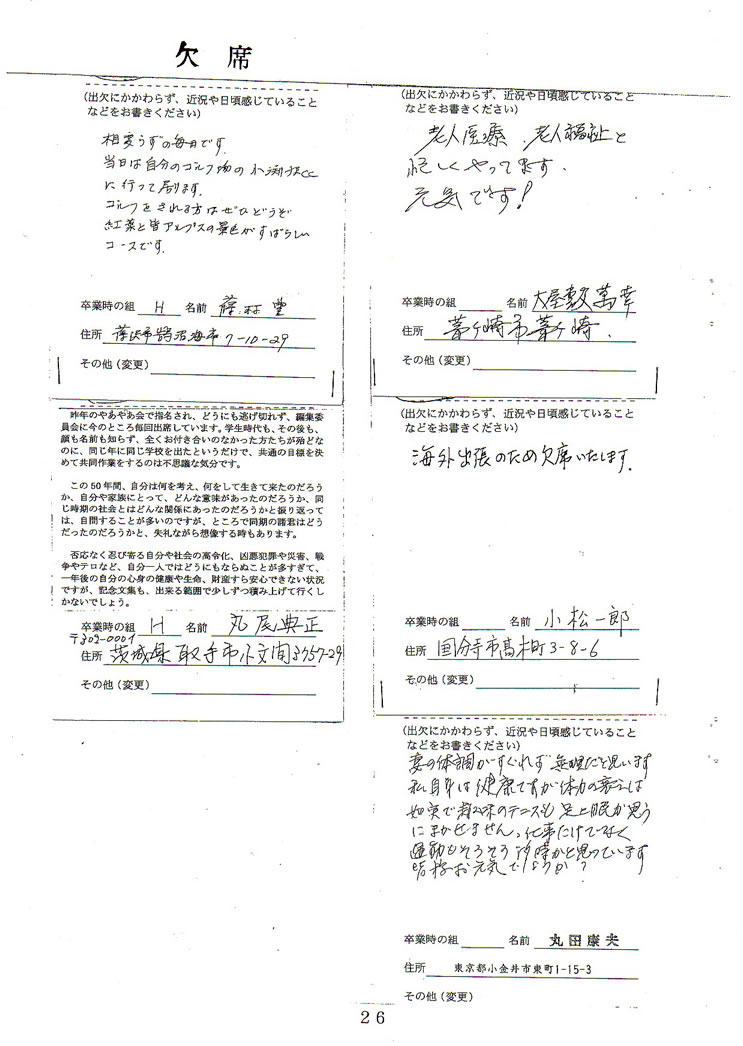 欠席
(出欠にかかわらず、近況や日頃感じていること
などをお書きください)
相変らずの毎日です。
当日は自分のゴルフ場の小渕沢cc
に行って居ります。
ゴルフをされる方はぜひどうぞ
紅葉と皆アルプスの景色がすばらしい
コースです。
卒業時の組 H 名前 藤村 豊
住所 藤沢市鵠沼海岸7-10-29
その他(変更)
昨年のやあやあ会で指名され、どうにも逃げ切れず、編集委
員会に今のところ毎回出席しています。学生時代も、その後も、
顔も名前も知らず、全くお付き合いのなかった方たちが殆どな
のに、同じ年に同じ学校を出たというだけで、共通の目標を決
めて共同作業をするのは不思議な気分です。
この50年間、自分は何を考え、何をして生きて来たのだろう
か、自分や家族にとって、どんな意味があったのだろうか、同
じ時期の社会とはどんな関係にあったのだろうかと振り返って
は、自問することが多いのですが、ところで同期の諸君はどう
だったのだろうかと、失礼ながら想像する時もあります。
否応なく忍び寄る自分や社会の高令化、凶悪犯罪や災害、戦
争やテロなど、自分一人ではどうにもならぬことが多すぎて、
一年後の自分の心身の健康や生命、財産すら安心できない状況
ですが、記念文集も、出来る範囲で少しずつ積み上げて行くし
かないでしょう。
卒業時の組 H 名前 丸尾典正
〒302-0001
住所 茨城県取手市小文間3757-29
その他(変更)
(出欠にかかわらず、近況や日頃感じていること
などをお書きください)
老人医療、老人福祉と
忙しくやってます。
元気です!
卒業時の組 名前 大屋敷萬幸
住所 茅ヶ崎市茅ヶ崎
その他(変更)
(出欠にかかわらず、近況や日頃感じていること
などをお書きください)
海外出張のため欠席いたします。
卒業時の組 名前 小松一郎
住所 国分寺市高木町3-8-6
その他(変更)
(出欠にかかわらず、近況や日頃感じていること
などをお書きください)
妻の体調がすぐれず無理だと思います
私自身は健康ですが体力の衰えは
如実で趣味のテニスも足と眼が思う
にまかせません、仕事だけでなく
運動もそろそろ
時かと思っています
皆様お元気でしょうか?
卒業時の組 名前 丸田康夫
住所 東京都小金井市東町1-15-3
その他(変更)
26